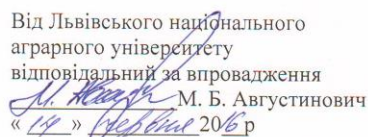 Від Львівського національного
аграрного університету
відповідальний за впровадження
М. Б. Августинович
«14» червня 2016 р